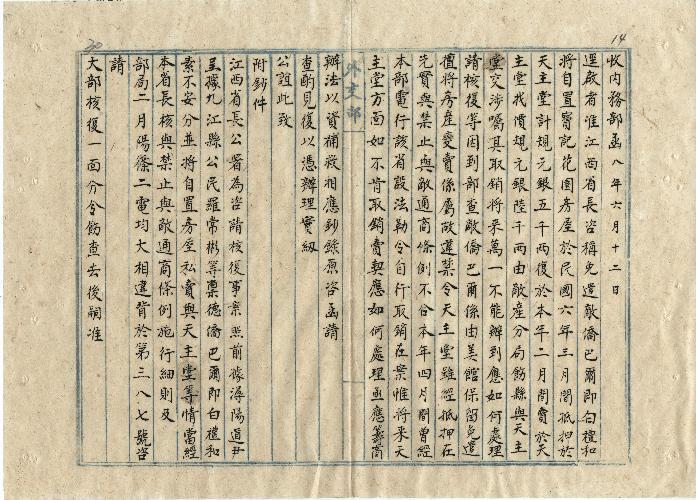 14
收內務部函八年六月十二日
逕啟者准江西省長咨稱免遣敵僑巴爾即白禮和
將自置醫記花園房屋於民國六年三月間抵押於
天主堂計規元銀五千兩復於本年二月間賣於天
主堂找價規元銀陸千兩由敵產分局飭縣與天主
堂交涉囑其取銷將來萬一不能辦到應如何處理
請核復等因到部查敵僑巴爾係由美館保留免遣
擅將房產變賣係屬故違禁令天主堂雖經抵押在
先實與禁止與敵通商條例不合本年四月間曾經
本部電行該省設法勒令自行取銷在案惟將來天
主堂方面如不肯取銷賣契應如何處理亟應籌商
外交部
辦法以資補救相應鈔錄原咨函請
查酌見復以憑辦理實紉
公誼此致
附鈔件
江西省長公署為咨請核復事案照前據潯陽道尹
呈據九江縣公民羅常彬等稟德僑巴爾即白禮和
素不安分並將自置房屋私賣與天主堂等情當經
本省長核與禁止與敵通商條例施行細則及
部局二月陽篠二電均大相違背於第三八七號咨
請
大部核復一面分令飭查去後嗣准